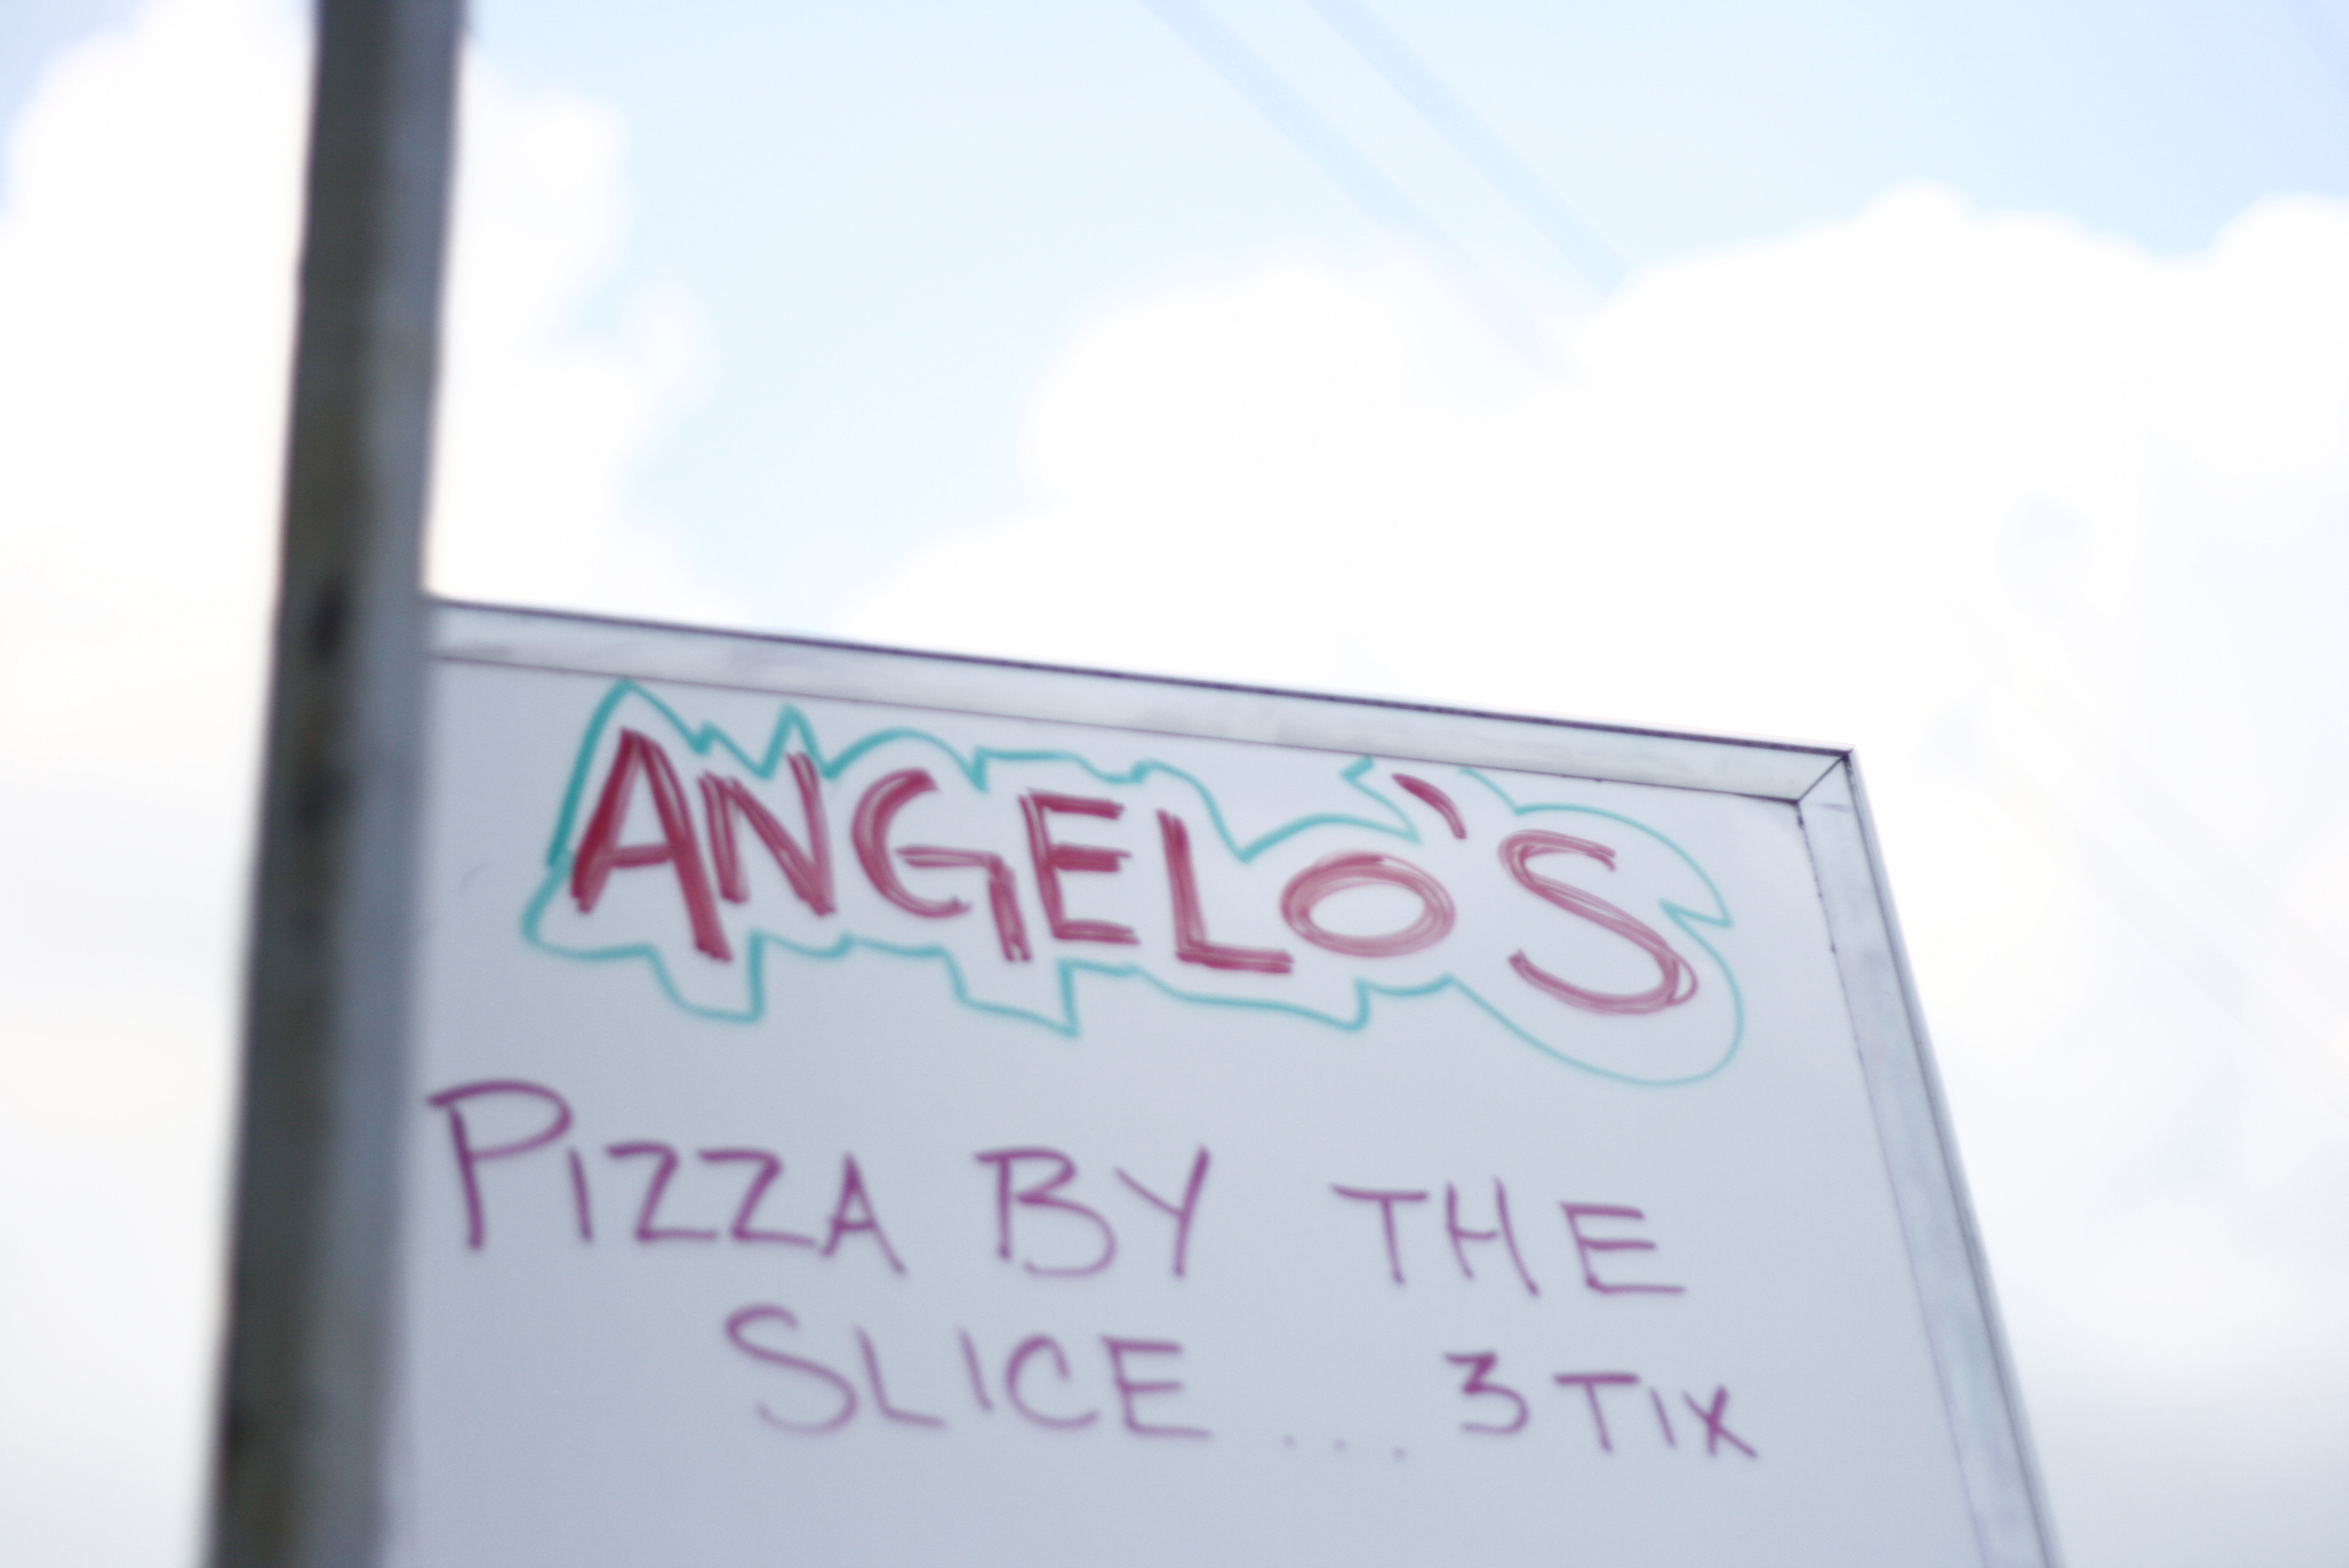 ANGELO'S
PIZZA BY THE
SLICE ... 3 TIX